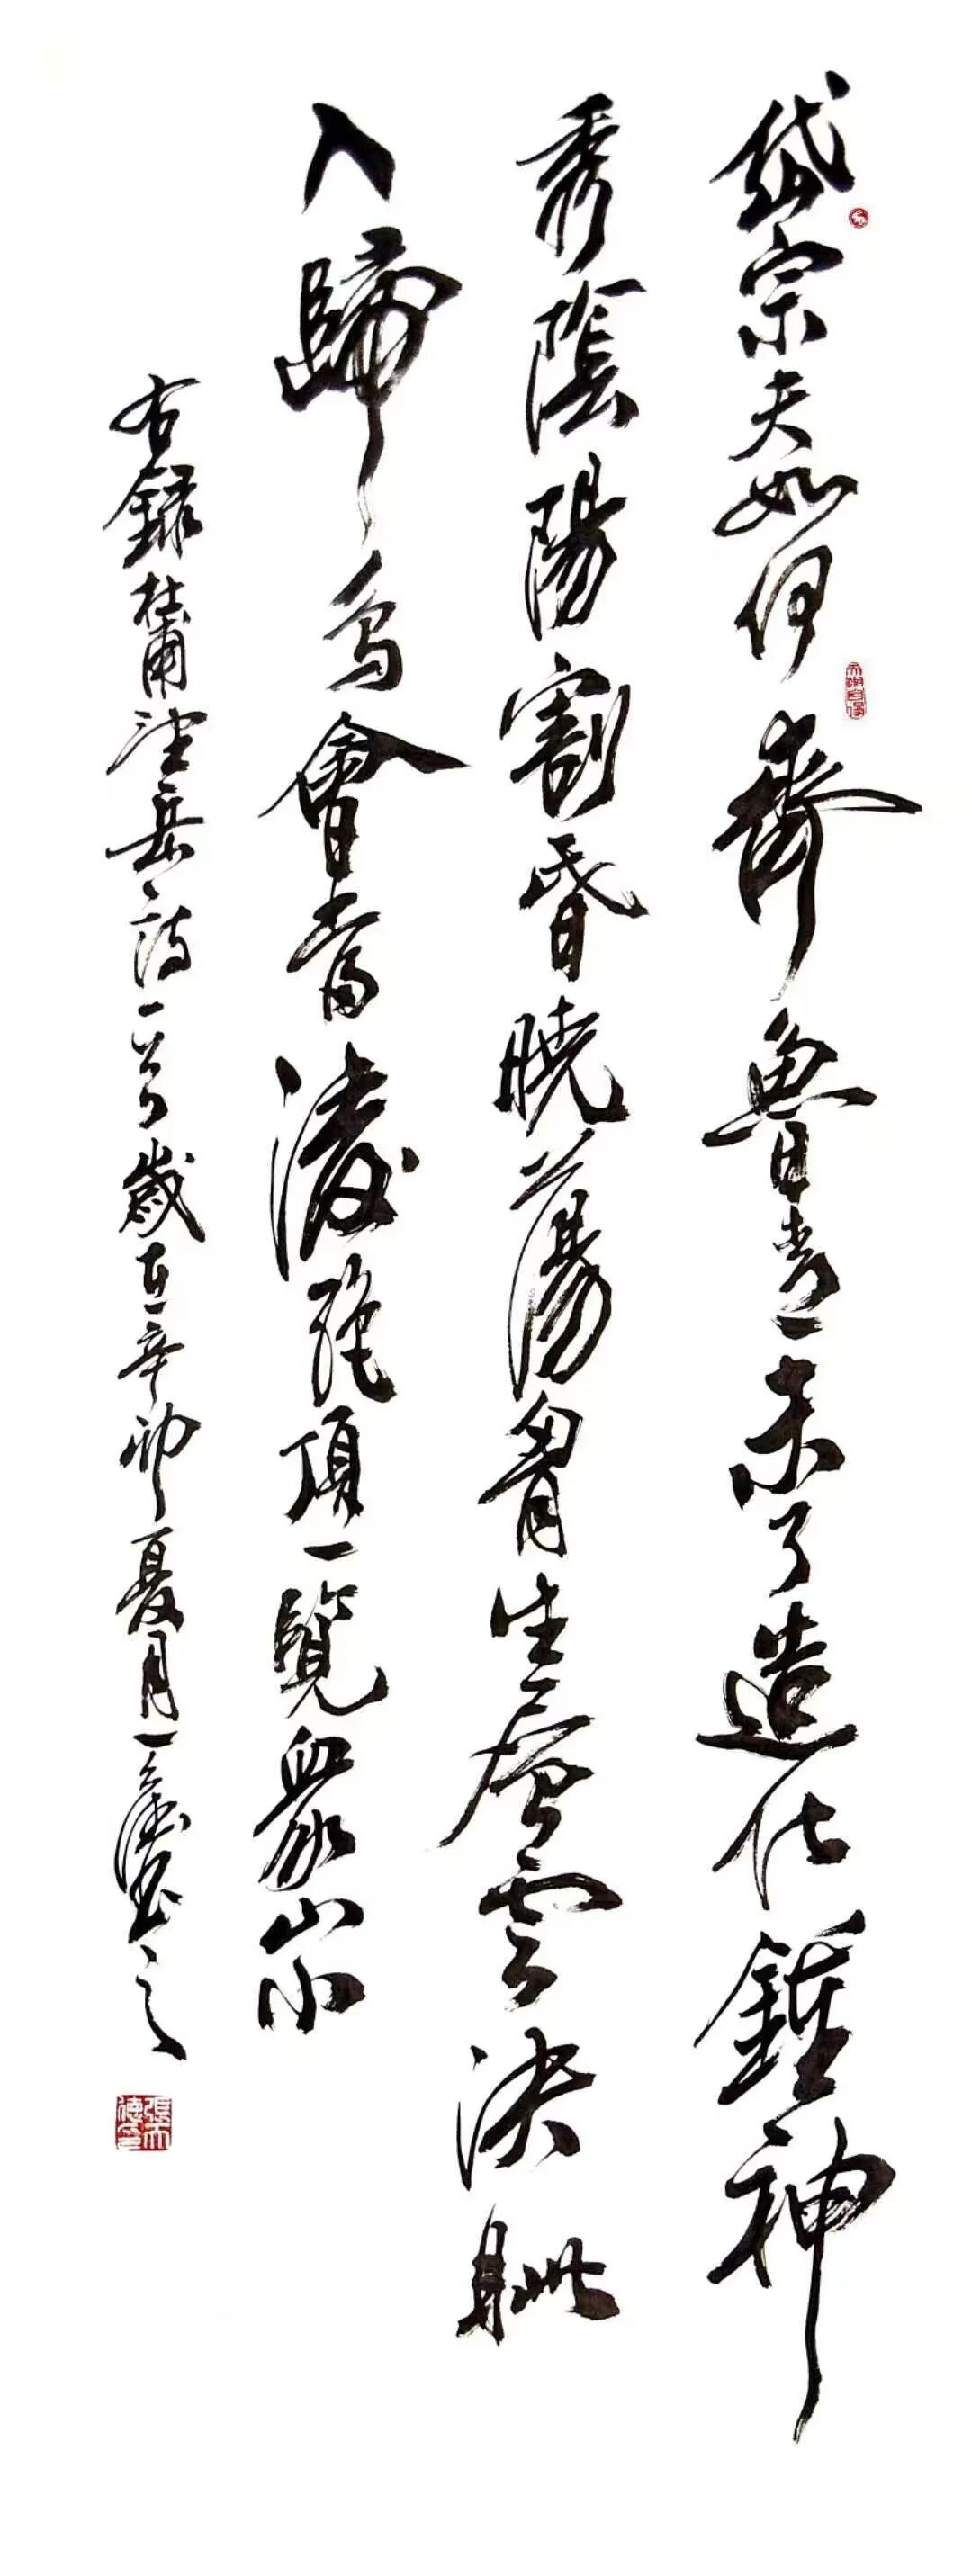 岱宗夫如何齊魯青未了造化鍾神
秀陰陽割昏曉蕩胷生層雲決眦
入歸鳥會當凌絕頂一覽眾山小
右錄杜甫望岳詩一首歲在辛卯夏月一濤書之